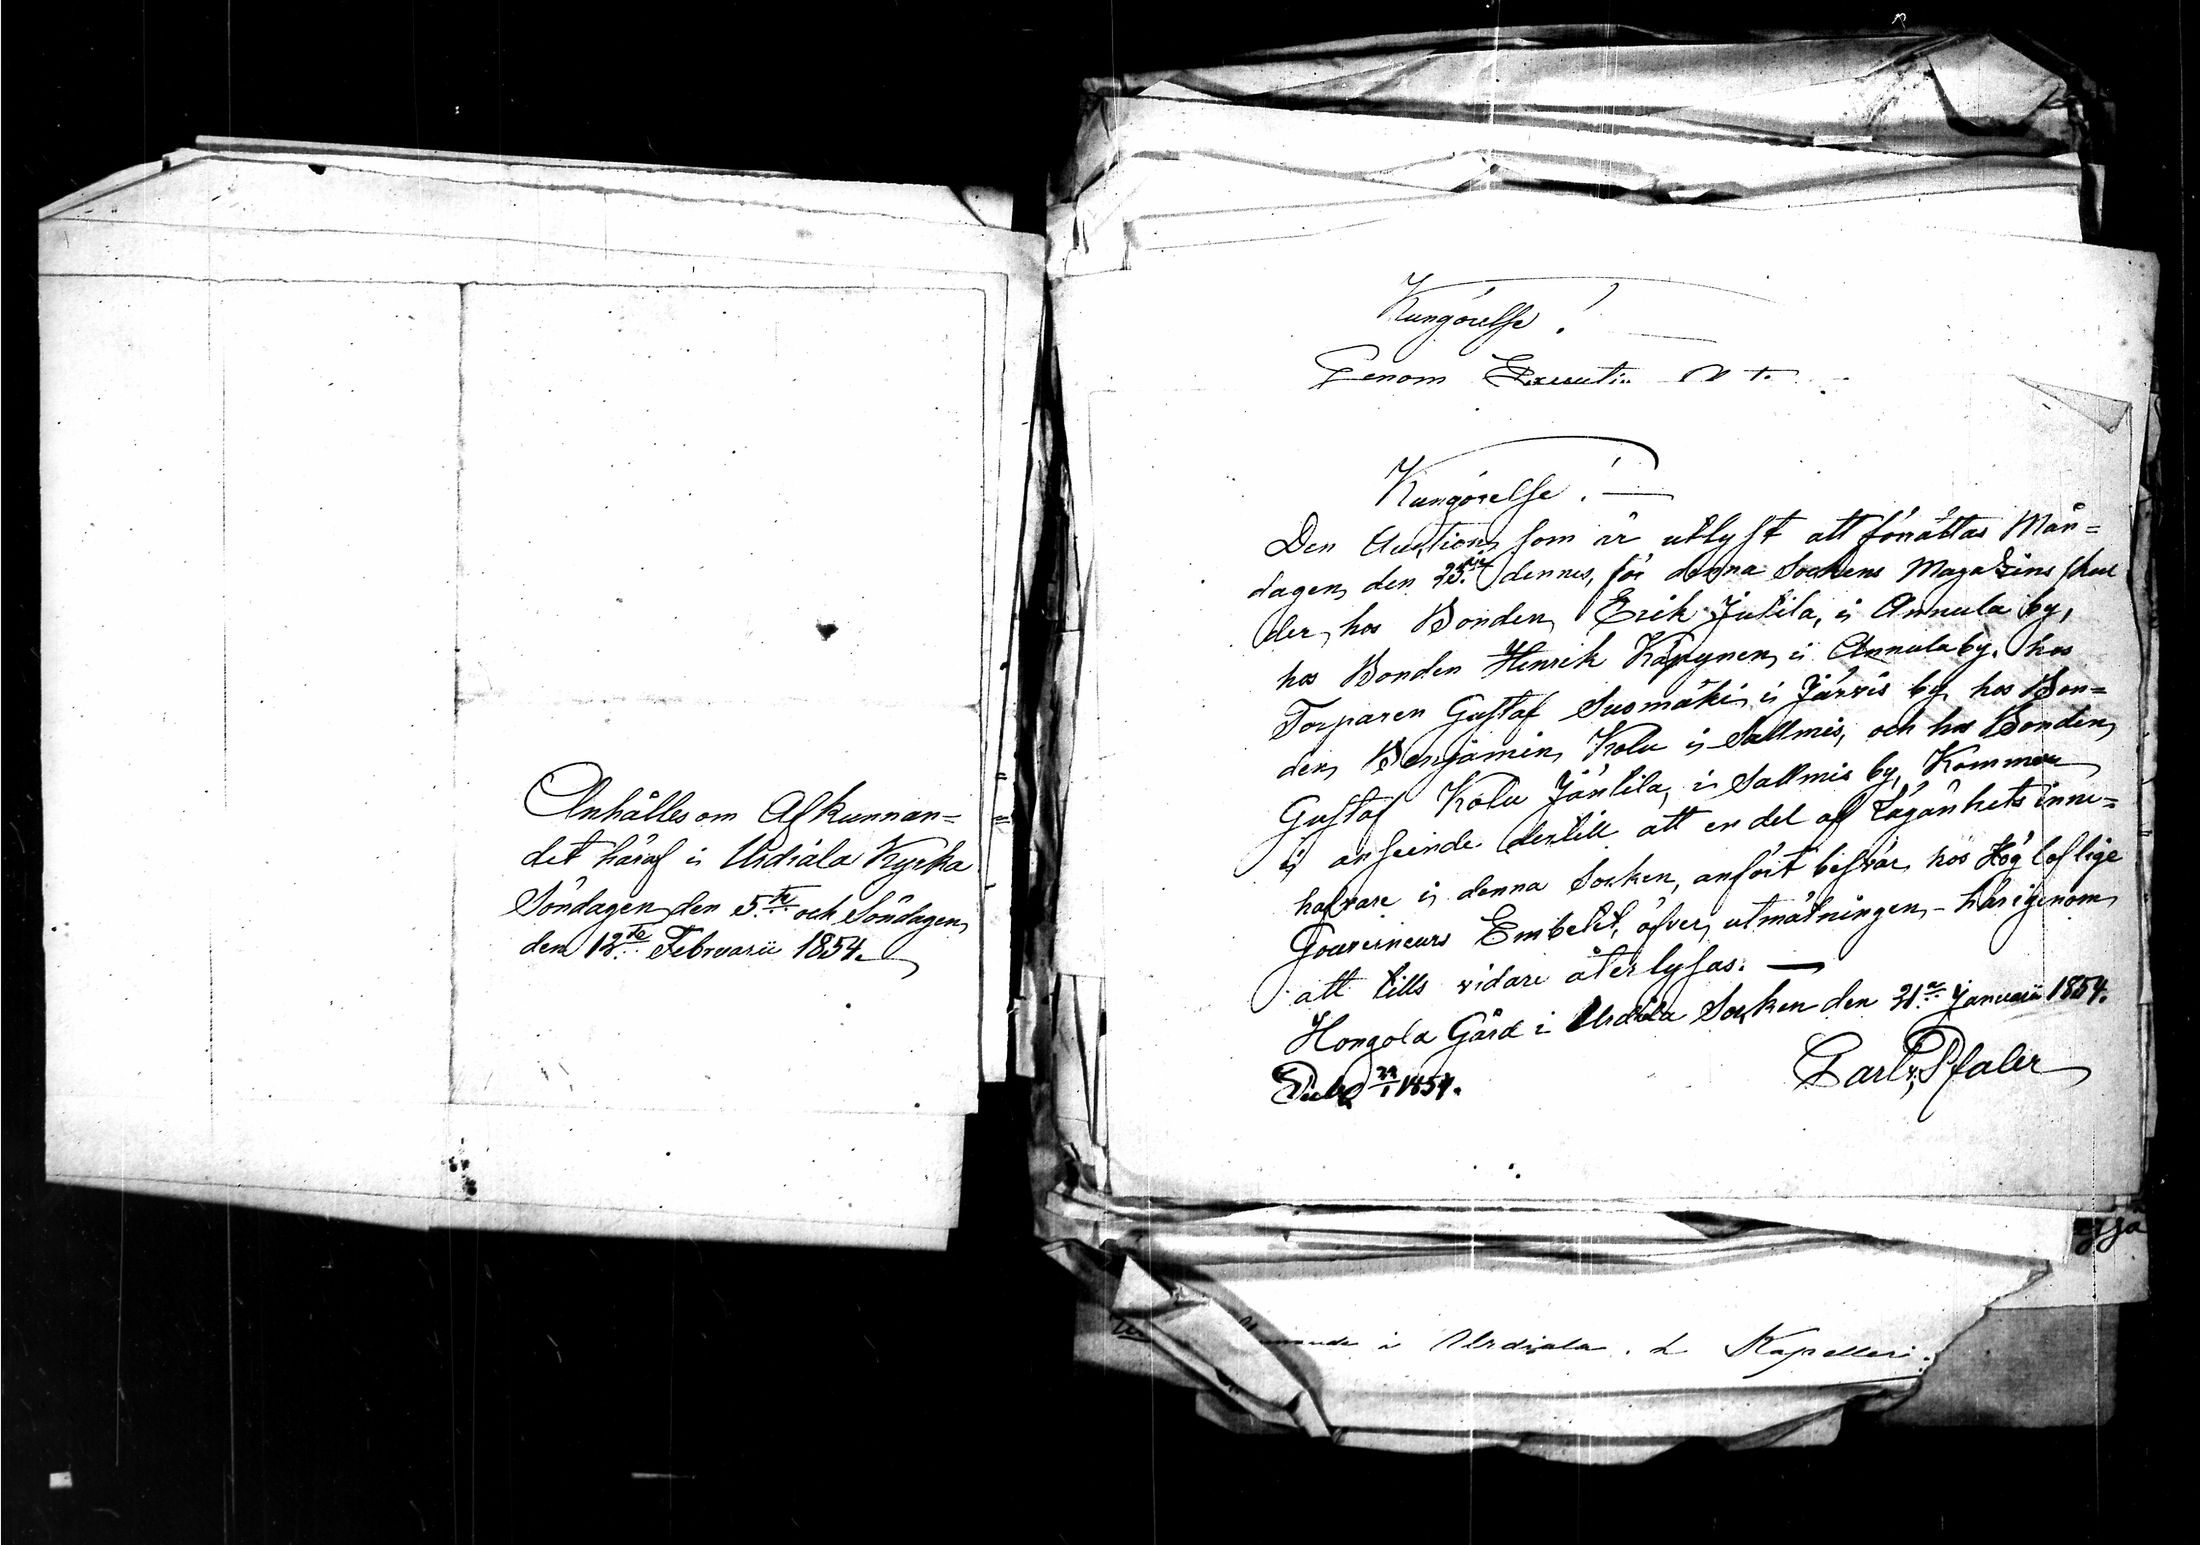 Anhålles om Afkunnan=
det häraf i Urdiala Kyrka
Söndagen den 5.te och Söndagen
den 12.te Februarii 1854.
Kungörelse!
Genom
Kungörelse!
Den Auction som är utlyst att förrättas Mån=
dagen den 23.dje dennes, för denna Sockens Magazins skul
der, hos Bonden Erik Jutila, i Annula by,
hos Bonden Henrik Käpynen i Annula by, hos
Torparen Gustaf Suomäki i Järvis by, hos Bon=
den Benjamin Kolu i Sallmis, och hos Bonden
Gustaf Kolu Jäntila, i Sallmis by, Kommer
i anseende dertill att en del af Lägenhets inne=
hafvare i denna Socken, anfört besvär hos Högloflige
Gouverneurs Embetet, öfver utmätningen, – härigenom
att tills vidare återlysas. —
Hongola Gård i Urdiala Socken den 21.a Januarii 1854.
Carl v. Pfaler
Publ 22/1 1854.
i Urdiala. Kapelleri.